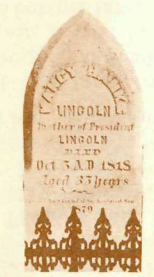 NANCY HANKS
LINCOLN
Mother of President
LINCOLN
DIED
Oct 5 A.D. 1818
Aged 35 Years
1879